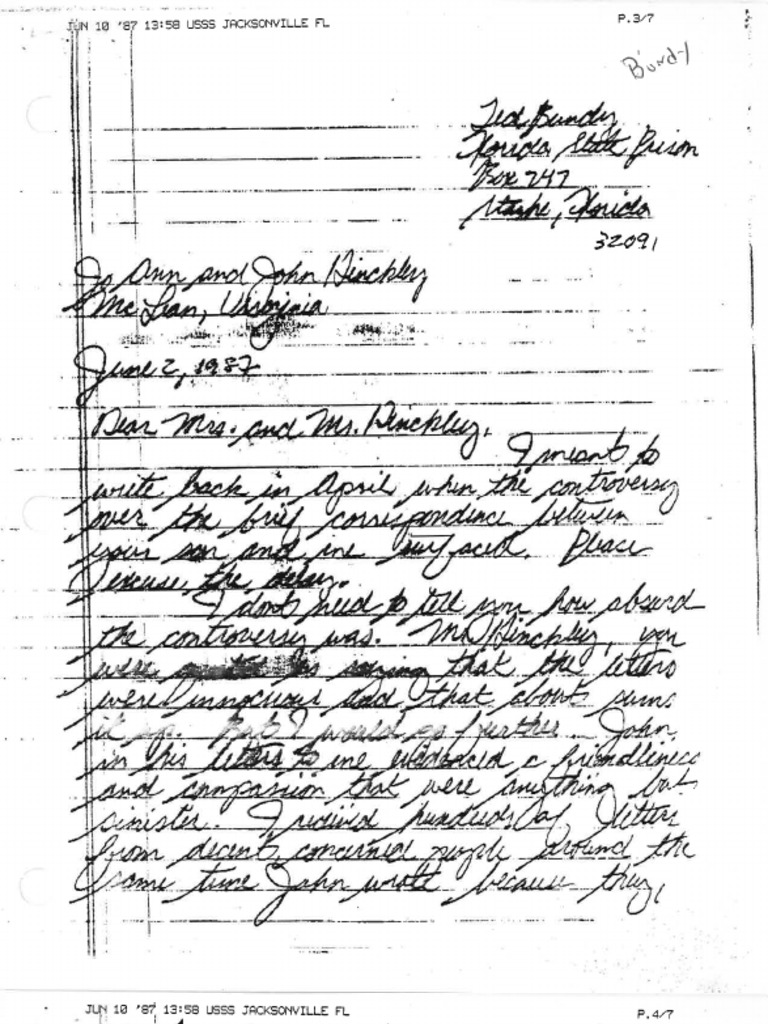 JUN 10 '87 13:58 USSS JACKSONVILLE FL P.3/7
Bundy
Ted Bundy
Florida State Prison
Box 747
Starke, Florida
32091
To Ann and John Hinckley
McLean, Virginia
June 2, 1987
Dear Mrs. and Mr. Hinckley,
I meant to
write back in April when the controversy
over the brief correspondence between
your son and me surfaced. Please
excuse the delay.
I don't need to tell you how absurd
the controversy was. Mr. Hinckley, you
were saying that the letters
were innocuous and that about sums
it up. But I would go further. John,
in his letters to me evidenced a friendliness
and compassion that were anything but
sinister. I received hundreds of letters
from decent, concerned people around the
same time John wrote because they,
JUN 10 '87 13:58 USSS JACKSONVILLE FL P.4/7